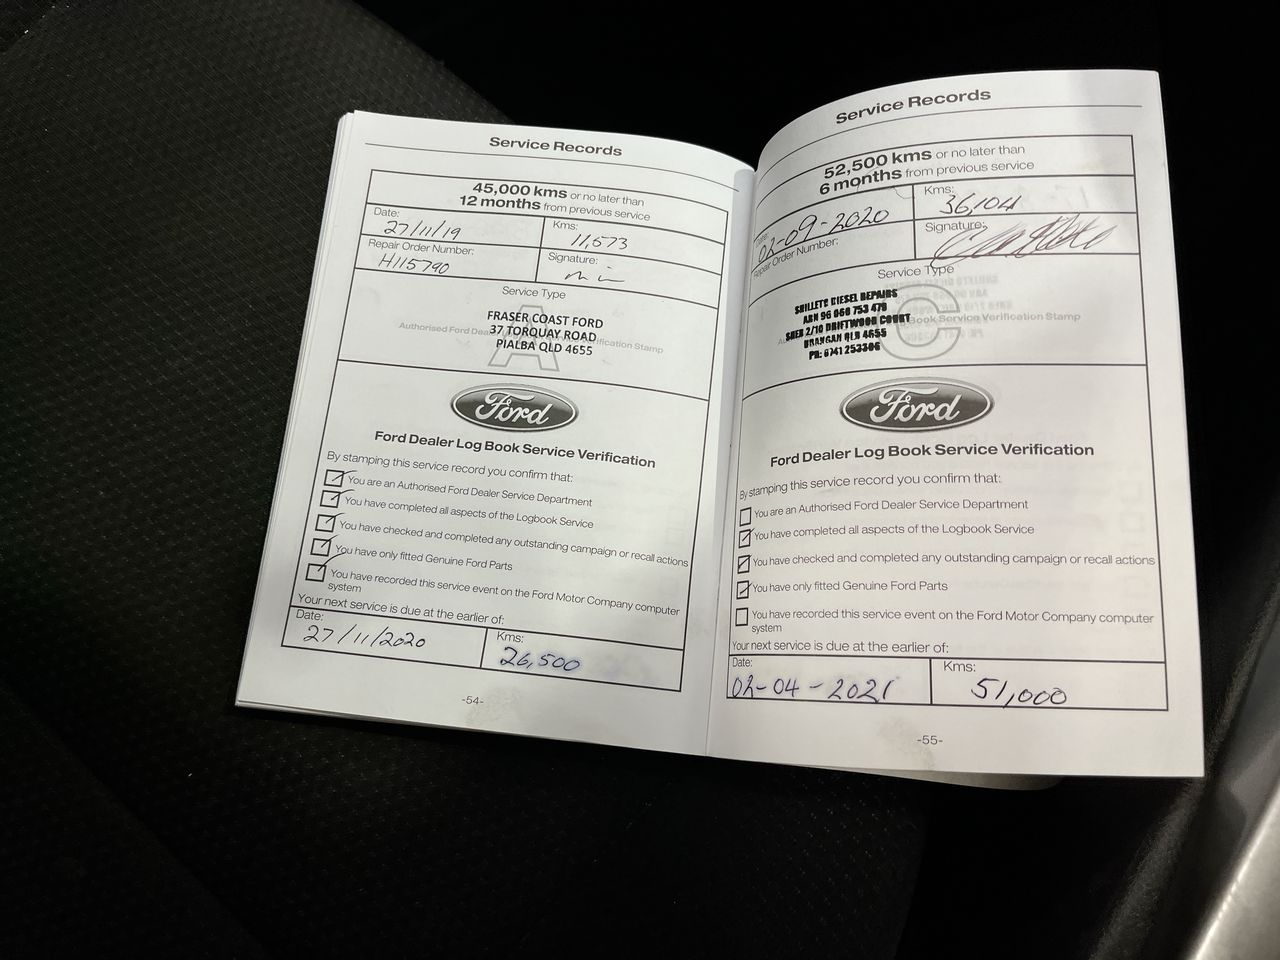 Service Records
45,000 kms or no later than
12 months from previous service
Date:
27/11/19
Kms:
11,573
Repair Order Number:
H115790
Signature:
Service Type
A
Authorised Ford Dea
ification Stamp
FRASER COAST FORD
37 TORQUAY ROAD
PIALBA QLD 4655
Ford
Ford Dealer Log Book Service Verification
By stamping this service record you confirm that:
You are an Authorised Ford Dealer Service Department
You have completed all aspects of the Logbook Service
You have checked and completed any outstanding campaign or recall actions
You have only fitted Genuine Ford Parts
You have recorded this service event on the Ford Motor Company computer
system
Your next service is due at the earlier of:
Date:
27/11/2020
Kms:
26,500
-54-
Service Records
52,500 kms or no later than
6 months from previous service
02-09-2020
Kms:
36,104
Repair Order Number:
Signature:
Service Type
C
Book Service Verification Stamp
DIESEL REPAIRS
ABN 96 060 753 479
2/10 DRIFTWOOD COURT
URANGAN QLD 4655
PH: 0741 253306
Ford
Ford Dealer Log Book Service Verification
By stamping this service record you confirm that:
You are an Authorised Ford Dealer Service Department
You have completed all aspects of the Logbook Service
You have checked and completed any outstanding campaign or recall actions
You have only fitted Genuine Ford Parts
You have recorded this service event on the Ford Motor Company computer
system
Your next service is due at the earlier of:
Date:
02-04-2021
Kms:
51,000
-55-